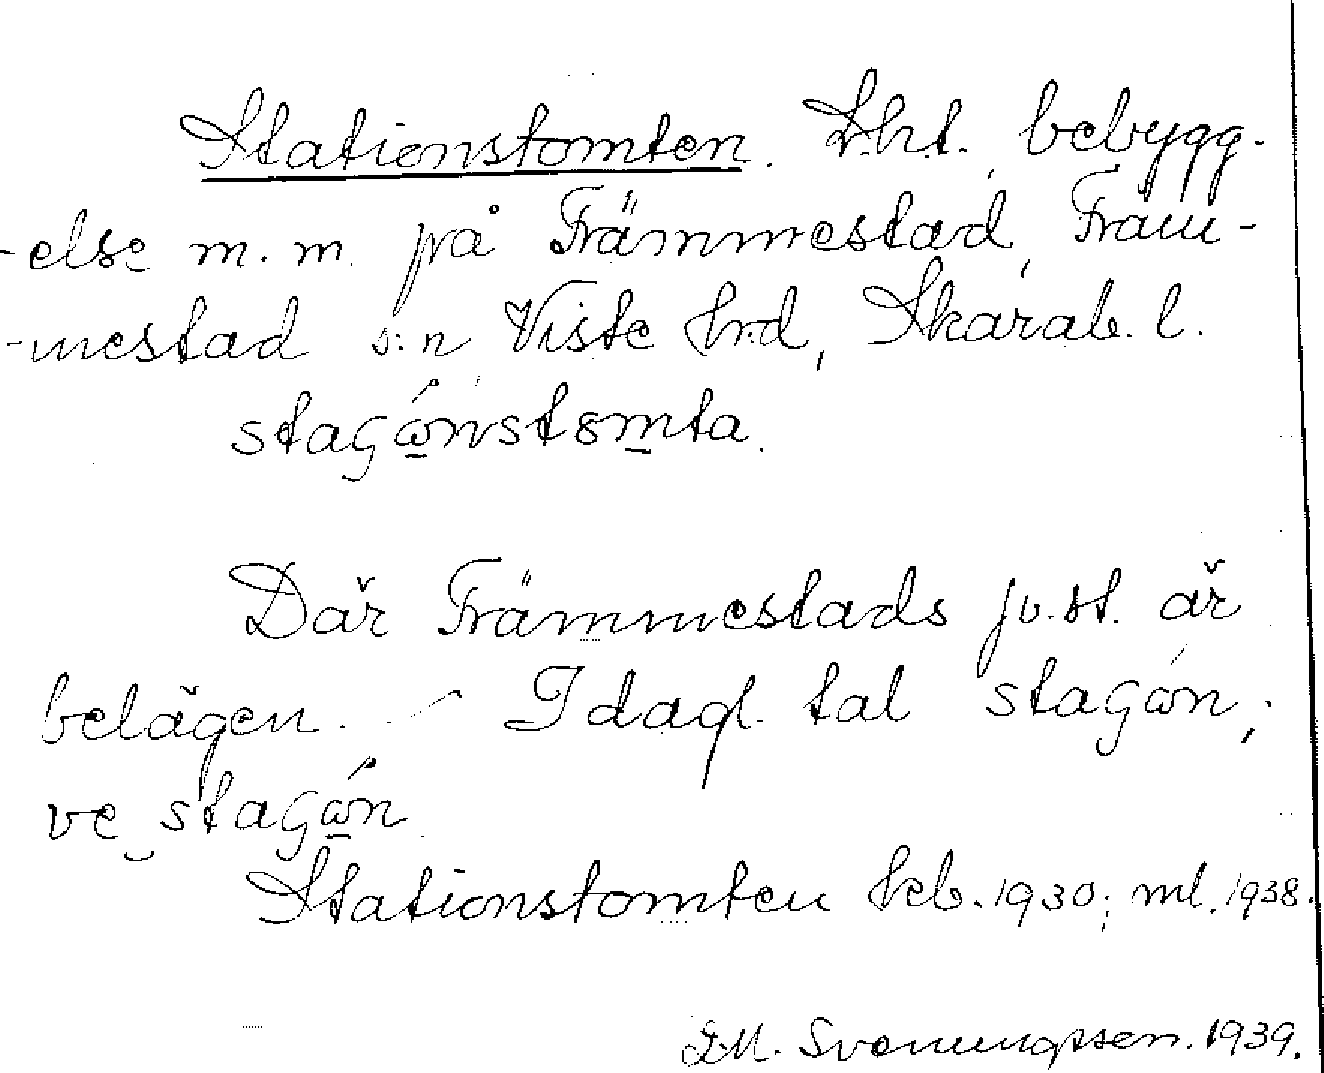 Stationstomten. Lht, bebygg-
-else m.m. på Främmestad, Främ-
-mestad s:n Viste hrd, Skarab. l.
staɢώnstomta.
Där Främmestads jv.st. är
belägen. - I dagl. tal staɢώn,
ve staɢώn
Stationstomten kb. 1930; ml. 1938.
D.M. Svenungsson. 1939.